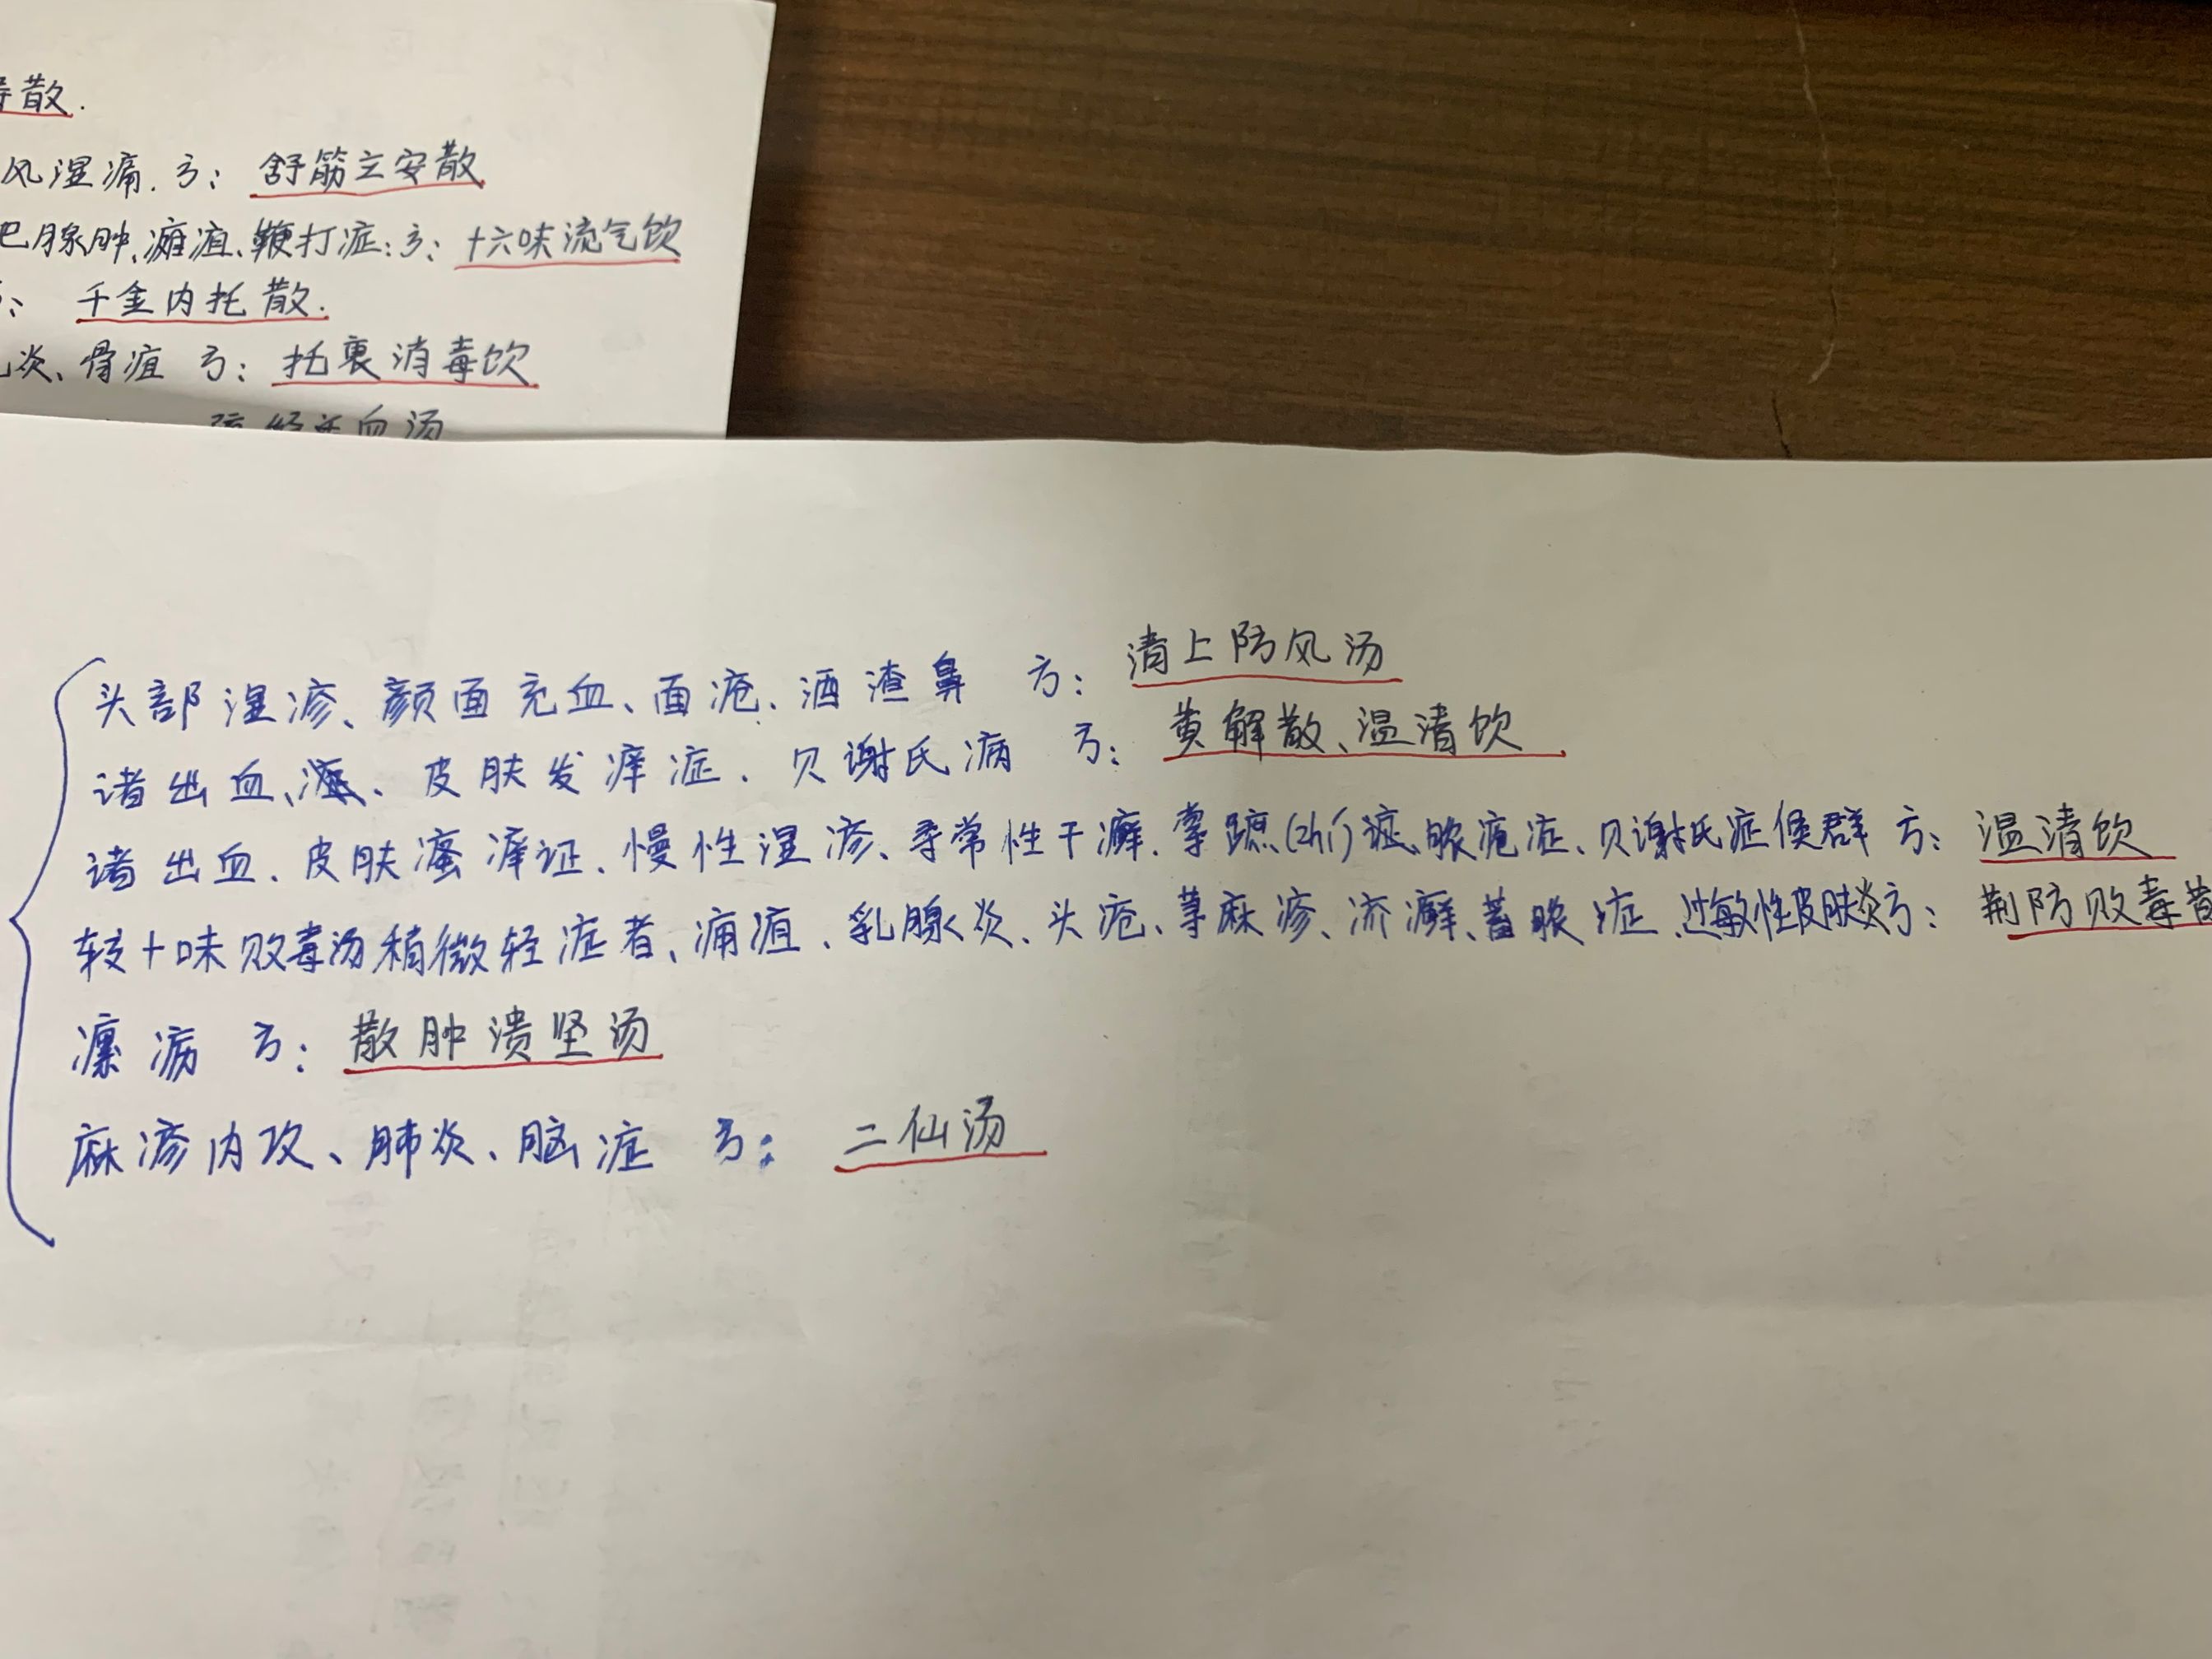 散.
风湿痛.方：舒筋立安散
巴腺肿、瘫疽、鞭打症：方：十六味流气饮
：千金内托散.
炎、骨疽 方：托裏消毒饮
血汤
头部湿疹、颜面充血、面疮、酒渣鼻 方：清上防风汤
诸出血、皮肤发痒症、贝谢氏病 方：黄解散、温清饮
诸出血、皮肤瘙痒证、慢性湿疹、寻常性干癣、掌蹠(zhí)症、脓疱症、贝谢氏症候群 方：温清饮
较十味败毒汤稍微轻症者、痈疽、乳腺炎、头疮、荨麻疹、疥癣、蓄脓症、过敏性皮肤炎方：荆防败毒
瘰疬 方：散肿溃坚汤
麻疹内攻、肺炎、脑症 方：二仙汤